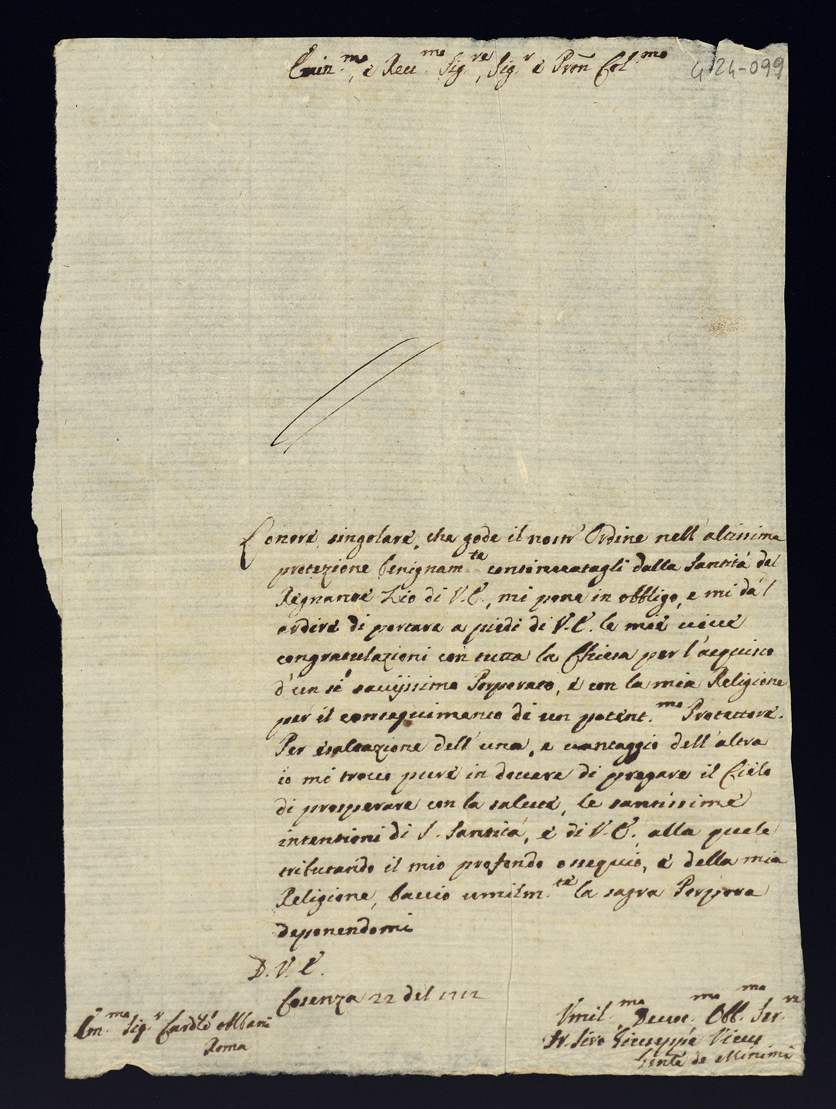 Emin.mo, e Reu.mo Sig.re, Sig.r e Pron Col.mo
4-24-099
L'onore singolare, che gode il nostr' Ordine nell'altissima
protezione benignam.te dalla Santità del
Regnante Zio di V.E., mi pone in obbligo, e mi dà l'
ardire di portare a piedi di V.E. le mie vive
congratulazioni con tutta la Chiesa per l'acquisto
d'un sì Porporato, e con la mia Religione
per il conseguimento di un potent.mo Protettore.
Per esaltazione dell'una, e vantaggio dell'altra
io mi trovo pure in dovere di pregare il Cielo
di prosperare con la salute, le santissime
intentioni di S. Santità, e di V.E., alla quale
tributando il mio profondo ossequio, e della mia
Religione, baccio umilm.te la sagra Porpora
deponendomi
D. V. E.
Cosenza 22 del 1712
Em.mo Sig.r Card.le Albani
Roma
Vmil.mo Deuot.mo Obb.mo Ser.re
Fr. Giuseppe
de Minimi